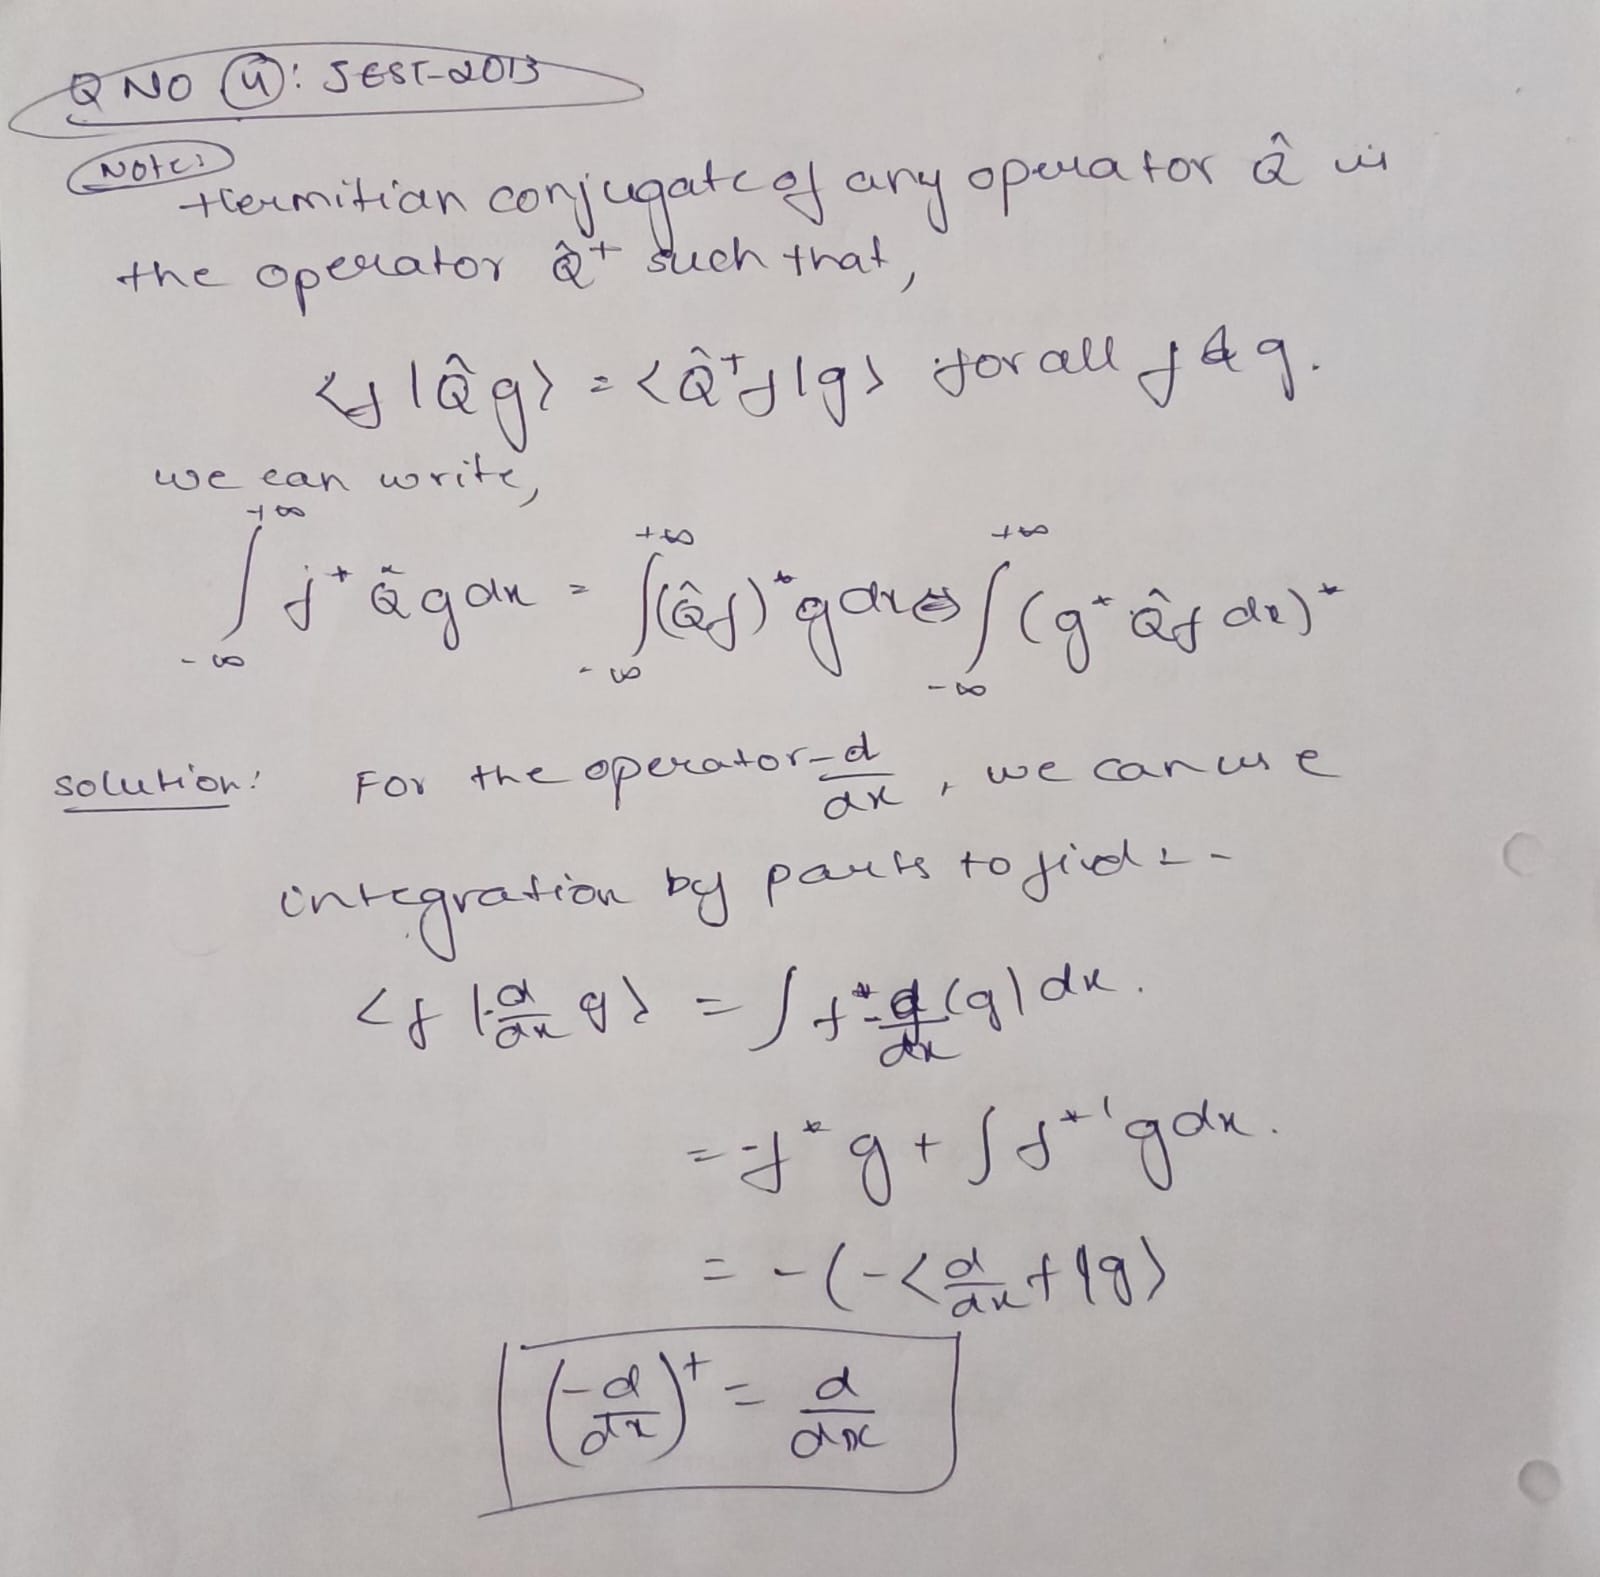 Q NO ④: JEST-2013
Note:
Hermitian conjugate of any operator Q̂ is
the operator Q̂⁺ such that,
<f|Q̂g> = <Q̂⁺f|g> for all f & g.
we can write,
∫_{-∞}^{+∞} f⁺ Q̂ g dx = ∫_{-∞}^{+∞} (Q̂f)* g dx = ∫_{-∞}^{+∞} (g* Q̂f dx)*
Solution: For the operator -d/dx, we can use
integration by parts to find :-
<f|-d/dx g> = ∫ f* -d/dx (g) dx.
= -f* g + ∫ f*' g dx.
= -(-<d/dx f|g>
(-d/dx)⁺ = d/dx